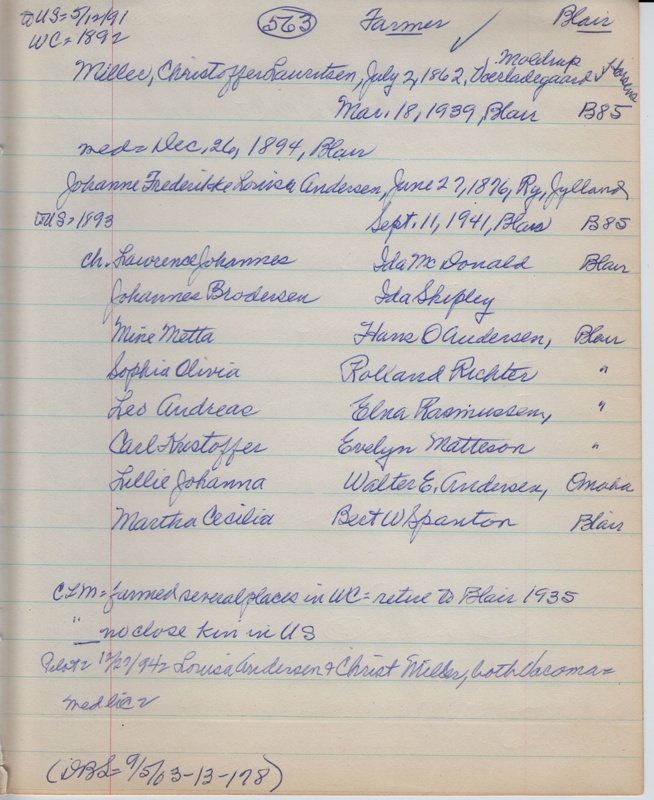 US=5/12/91 563 Farmer Blair
WC=1892
Moldrup
Miller, Christoffer Lauritsen, July 2, 1862, Voerladegaard, Horsens
Mar. 18, 1939, Blair B85
med= Dec. 26, 1894, Blair
Johanne Frederikke Lovisa Andersen, June 27, 1876, Ry, Jylland
US=1893 Sept. 11, 1941, Blair B85
Ch. Lawrence Johannes Ida McDonald Blair
Johannes Brodersen Ida Shipley
Mine Metta Hans O Andersen, Blair
Sophia Olivia Rolland Richter "
Leo Andreas Elna Rasmussen, "
Carl Kristoffer Evelyn Matteson "
Lillie Johanna Walter E. Andersen, Omaha
Martha Cecilia Bert W Spanton Blair
CLM= farmed several places in WC= retire to Blair 1935
" no close kin in US
12/27/94= Louisa Andersen & Christ Miller, both Vacoma=
med lic
(DBL= 9/5/03-13-178)